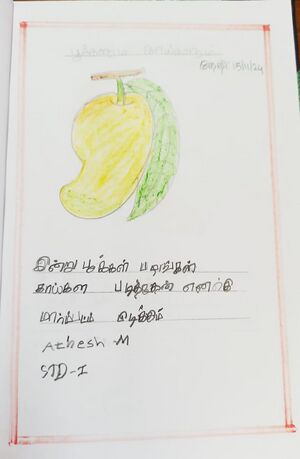 தேதி 15/11/24
இன்று பூக்கள் பழங்கள்
காய்கள் படித்தேன் எனக்கு
மாம்பழம் பிடிக்கும்
Athesh M
STD-I